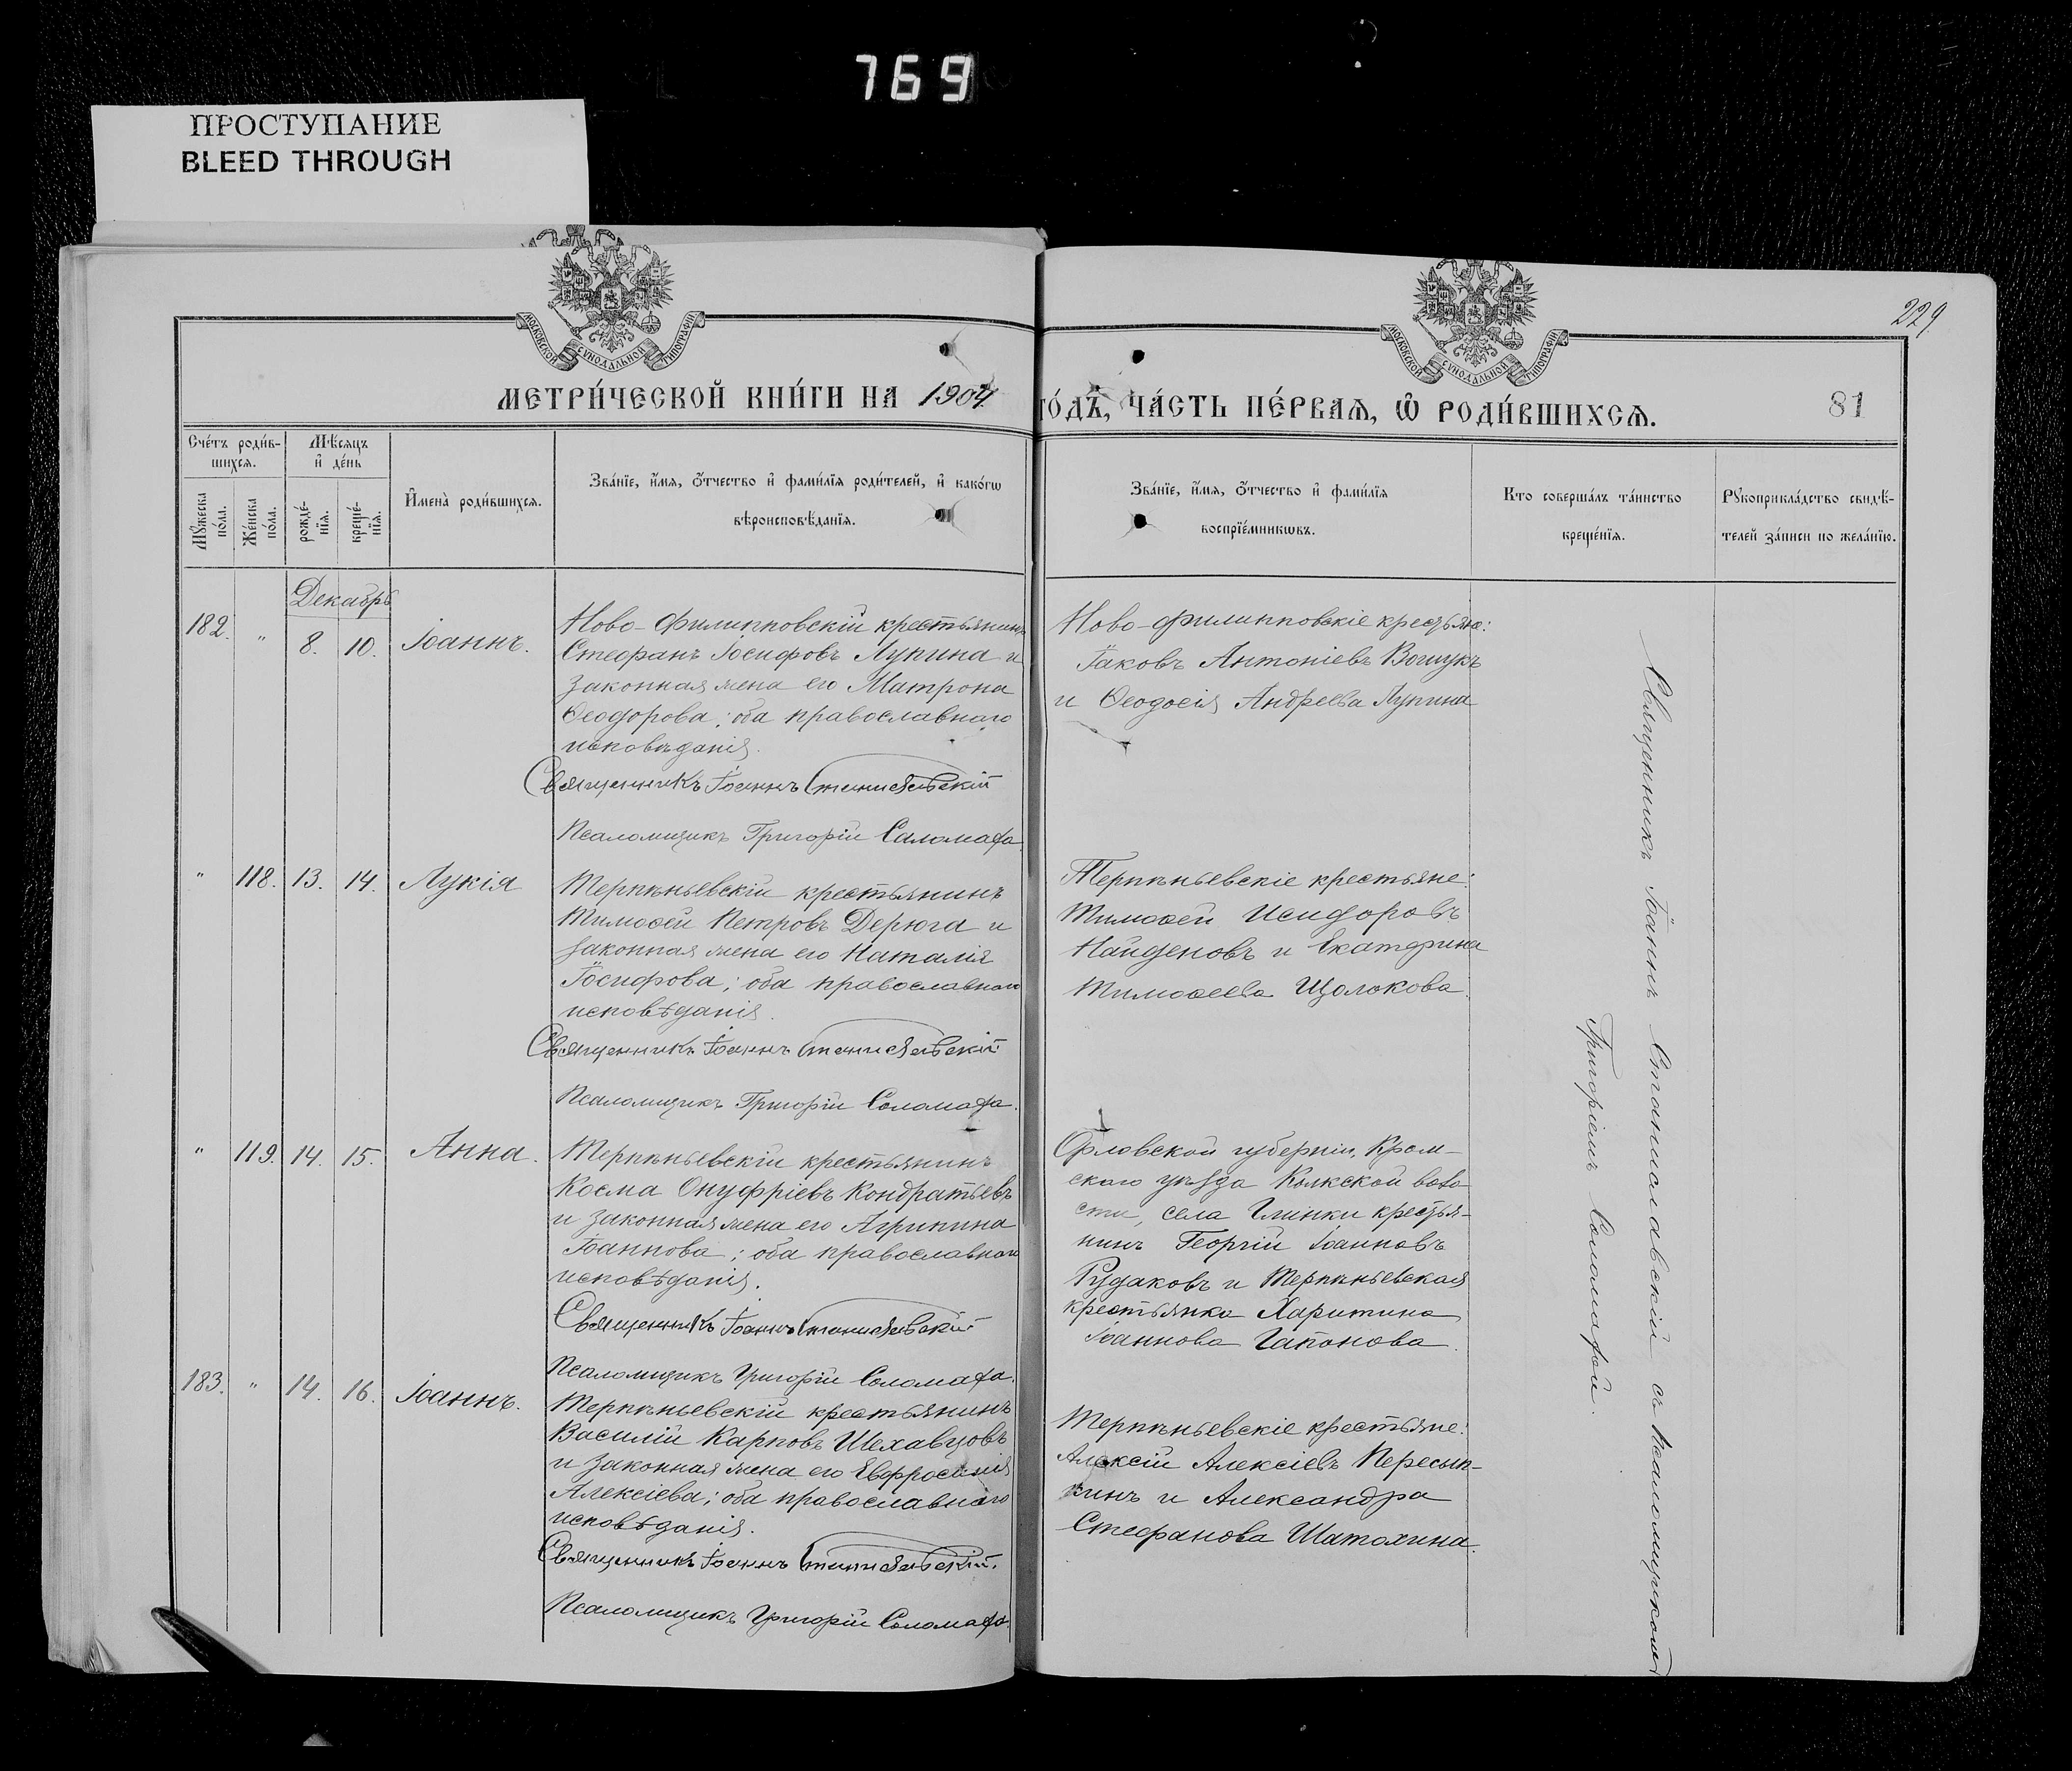 769
ПРОСТУПАНИЕ
BLEED THROUGH
229
МОСКОВСКОЙ СѴНОДАЛЬНОЙ ТИПОГРАФІИ
МОСКОВСКОЙ СѴНОДАЛЬНОЙ ТИПОГРАФІИ
МЕТРИ́ЧЕСКОЙ КНИ́ГИ НА 1904 ГО́ДЪ, ЧА́СТЬ ПЕ́РВАЯ, Ѡ РОДИ́ВШИХСЯ.
81
Сче́тъ роди́в-
шихся.
Мѣ́сяцъ
и҆ де́нь
Мꙋ́жеска
по́ла.
Же́нска
по́ла.
рожде́-
нїя.
креще́-
нїя.
И҆мена̀ роди́вшихся.
Зва́нїе, и҆́мя, ѻ҆́тчество и҆ фами́лїя роди́телей, и҆ како́гѡ
вѣроисповѣ́данїя.
Зва́нїе, и҆́мя, ѻ҆́тчество и҆ фами́лїя
воспрїе́мникѡвъ.
Кто соверша́лъ та́инство
креще́нїя.
Рꙋкоприкла́дство свидѣ́-
телей за́писи по жела́нїю.
Декабрь
182. " 8. 10. Іоаннъ.
Ново-Филипповскій крестьянинъ
Стефанъ Іосифовъ Лупина и
законная жена его Матрона
Ѳеодорова; оба православнаго
исповѣданія.
Священникъ Іоаннъ Станиславскій
Псаломщикъ Григорій Саломаха.
Ново-филипповскіе крестьяне:
Іаковъ Антоніевъ Вошукъ
и Ѳеодосія Андреева Лупина
" 118. 13. 14. Лукія
Терпѣньевскій крестьянинъ
Тимоѳей Петровъ Дерюга и
законная жена его Наталія
Іосифова; оба православнаго
исповѣданія.
Священникъ Іоаннъ Станиславскій
Псаломщикъ Григорій Соломаха.
Терпѣньевскіе крестьяне:
Тимоѳей Исидоровъ
Найденовъ и Екатерина
Тимоѳеева Щолокова.
" 119. 14. 15. Анна.
Терпѣньевскій крестьянинъ
Косма Онуфріевъ Кондратьевъ
и законная жена его Агрипина
Іоаннова; оба православнаго
исповѣданія.
Священникъ Іоаннъ Станиславскій
Псаломщикъ Григорій Соломаха.
Орловской губерніи, Кром-
скаго уѣзда
села Глинки крестья-
нинъ Георгій Іоанновъ
Рудаковъ и Терпѣньевская
крестьянка Харитина
Іоаннова Гапонова.
183. " 14. 16. Іоаннъ.
Терпѣньевскій крестьянинъ
Василій Карповъ Шехавцовъ
и законная жена его Евфросинія
Алексіева; оба православнаго
исповѣданія.
Священникъ Іоаннъ Станиславскій.
Псаломщикъ Григорій Соломаха.
Терпѣньевскіе крестьяне:
Алексій Алексіевъ Пересып-
кинъ и Александра
Стефанова Шатохина.
Священникъ Іоаннъ Станиславскій съ псаломщикомъ
Григоріемъ Соломахой.